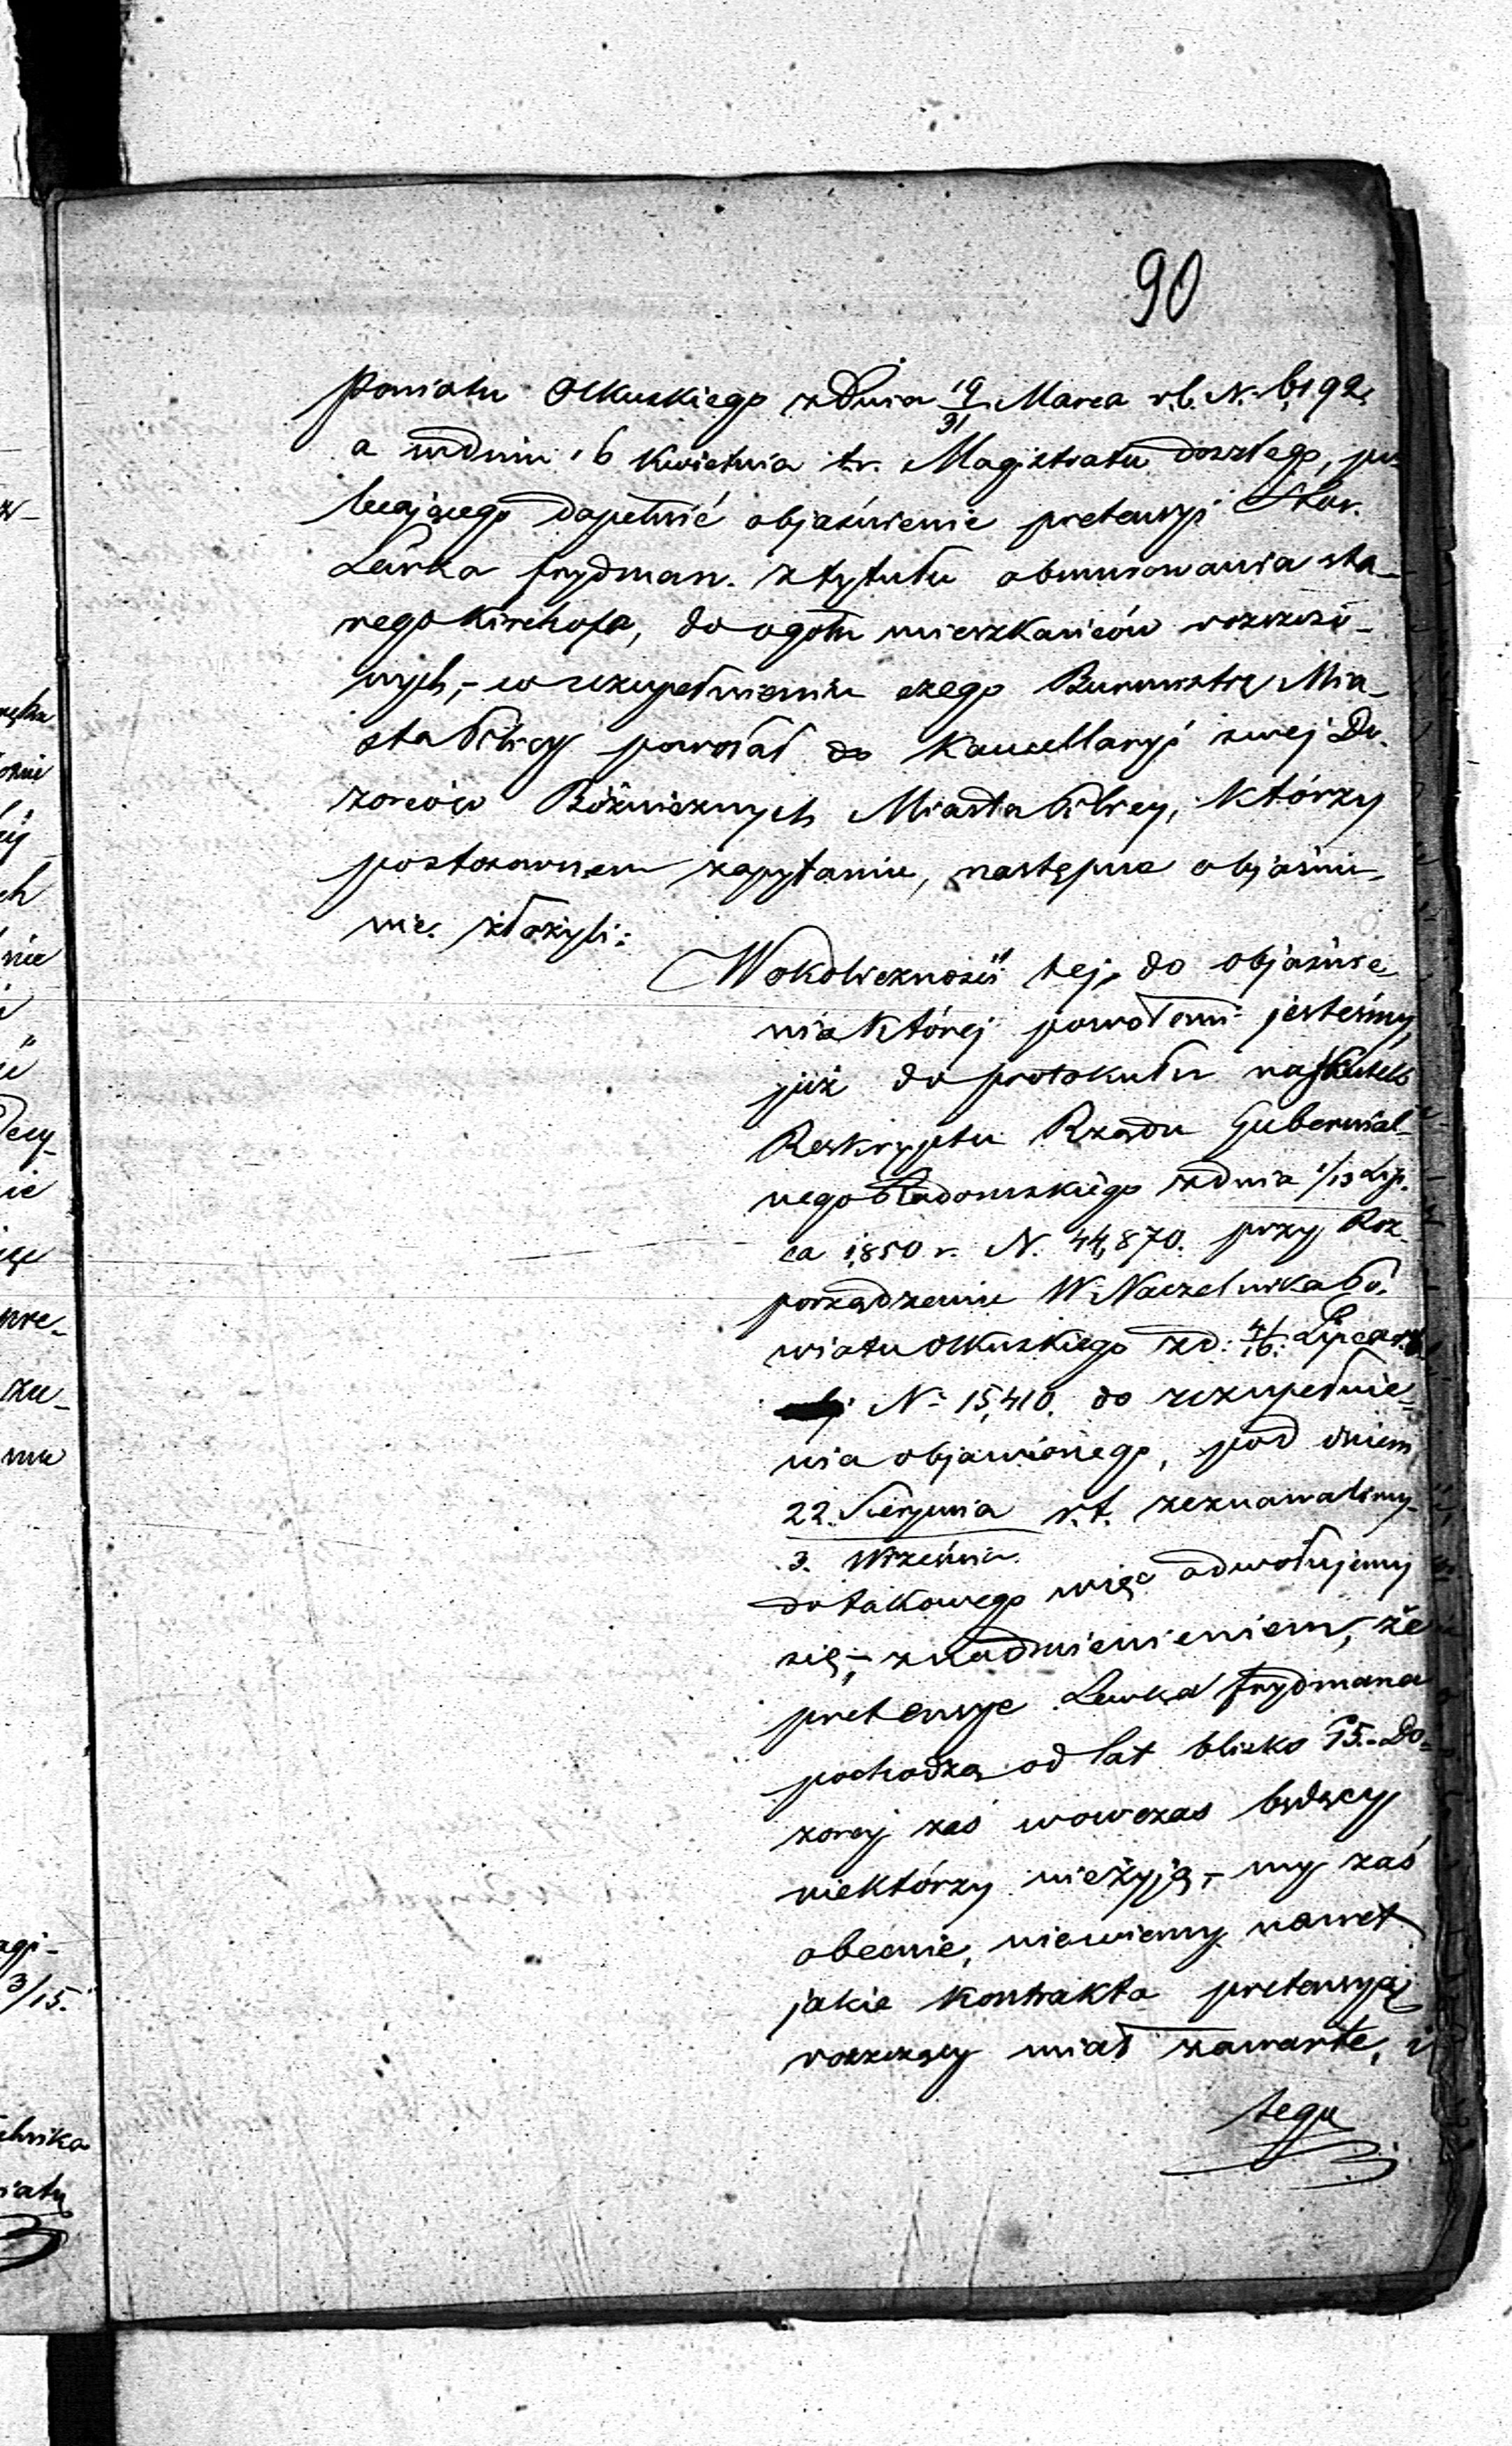 90
Powiatu Olkuskiego z dnia 19/31 Marca r.b. N. 6192,
a w dniu 16 Kwietnia t.r. Magistratu doszłego, po-
lecającego dopełnić objaśnienie pretensyi Star.
Lewka Frydman. z tytułu obmurowania sta-
rego Kirchofa, do ogółu mieszkańców rozszczo-
nych, - w uzupełnieniu czego Burmistrz Mia-
sta Pilicy powołał do Kancellaryi swej Do-
zorców Bóżniczych Miasta Pilicy, którzy
po stosownem zapytaniu, następne objaśnie-
nie złożyli:
W okoliczności tej, do objaśnie-
nia której powołani jesteśmy,
już do protokułu na skutek
Reskryptu Rządu Gubernial-
nego Radomskiego z dnia 1/13 Lip-
ca 1850 r. N. 44,870. przy Roz-
porządzeniu W. Naczelnika Po-
wiatu Olkuskiego z d: 4/16 Lipca
N. 15,410. do uzupełnie-
nia objawionego, pod dniem
22. Sierpnia r.t. zeznawalimy
3. Września.
do takowego więc odwołujemy
się, - z nadmienieniem, że
pretensye Lewka Frydmana
pochodzą od lat blisko 15. - Do-
zorcy zaś wowczas będący
niektórzy nieżyją, - my zaś
obecnie, niewiemy nawet
jakie kontrakta pretensyą
roszczący miał zawarte, i
tego